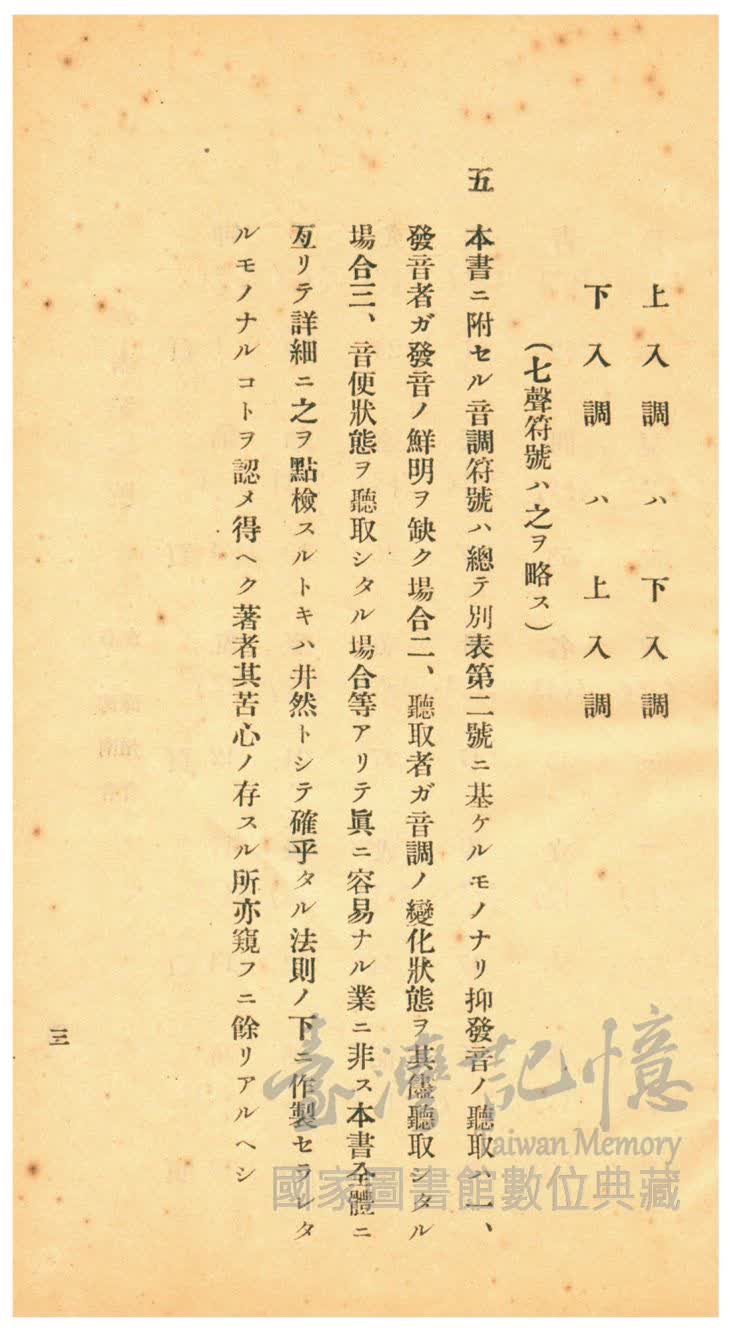 上入調ハ下入調
下入調ハ上入調
(七聲符號ハ之ヲ略ス)
五 本書ニ附セル音調符號ハ總テ別表第二號ニ基ケルモノナリ抑發音ノ聽取ハ一、
發音者ガ發音ノ鮮明ヲ缺ク場合二、聽取者ガ音調ノ變化狀態ヲ其儘聽取シタル
場合三、音便狀態ヲ聽取シタル場合等アリテ眞ニ容易ナル業ニ非ス本書全體ニ
亙リテ詳細ニ之ヲ點檢スルトキハ井然トシテ確乎タル法則ノ下ニ作製セラレタ
ルモノナルコトヲ認メ得ヘク著者其苦心ノ存スル所亦窺フニ餘リアルヘシ
三
臺灣記憶
Taiwan Memory
國家圖書館數位典藏